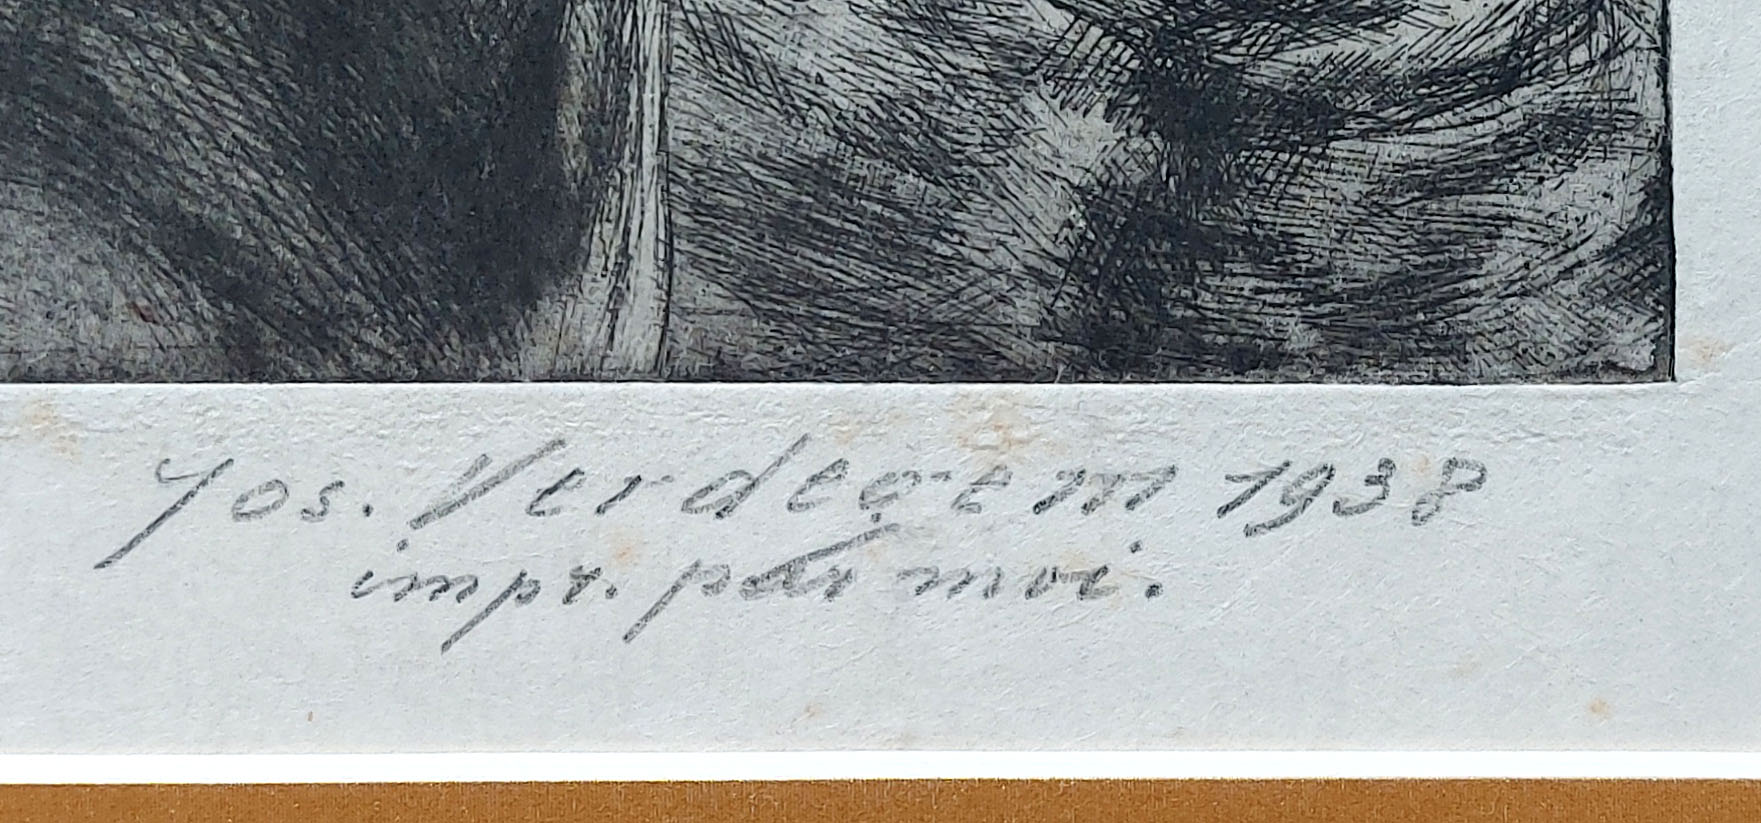 Jos. Verdegem 1938
impr. par moi.